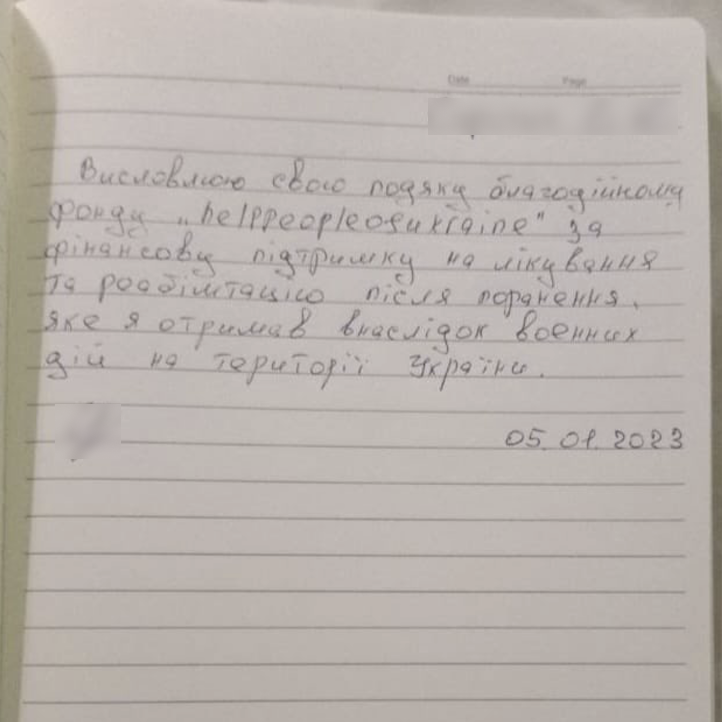 Date Page
Висловлюю свою подяку благодійному
фонду „helppeopleosukraine" за
фінансову підтримку на лікування
та рообілітацію після поранення,
яке я отримав внаслідок военних
дій на території України.
05.01.2023